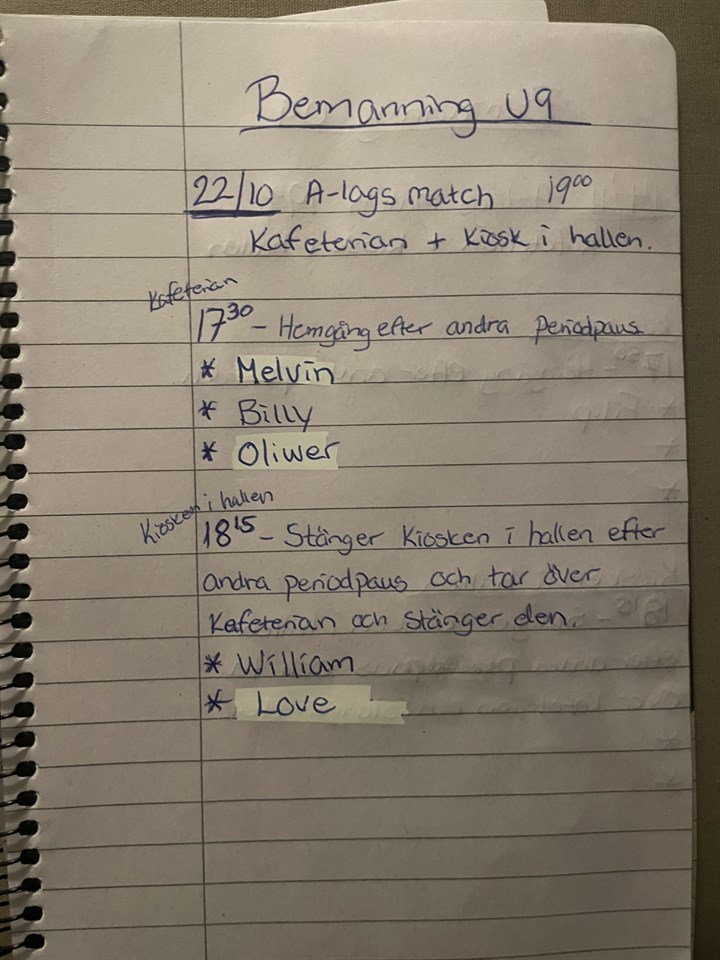 Bemanning U9
22/10 A-lags match 19⁰⁰
Kafeterian + Kiosk i hallen.
Kafeterian
17³⁰ - Hemgång efter andra Periodpaus
* Melvin
* Billy
* Oliwer
Kiosken i hallen
18¹⁵ - Stänger Kiosken i hallen efter
andra periodpaus och tar över
Kafeterian och Stänger den.
* William
* Love